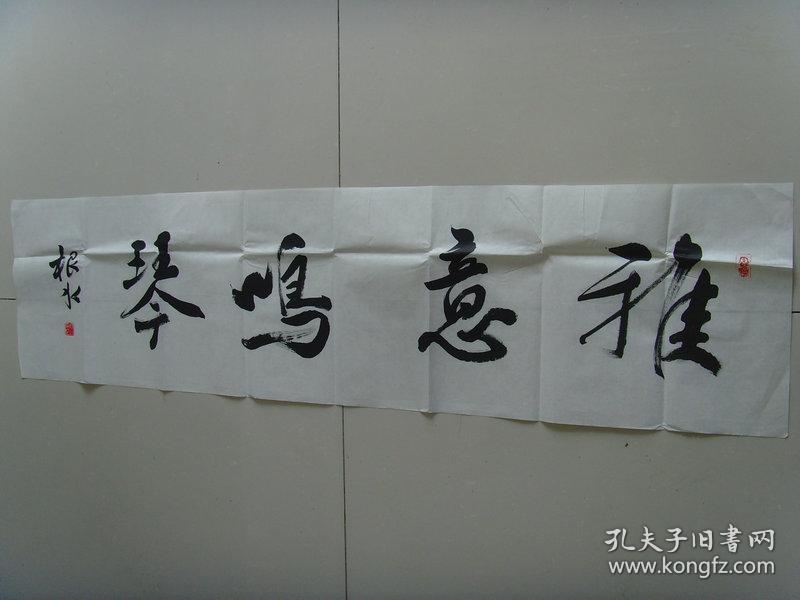 雅意鸣琴
根水
孔夫子旧书网
www.kongfz.com